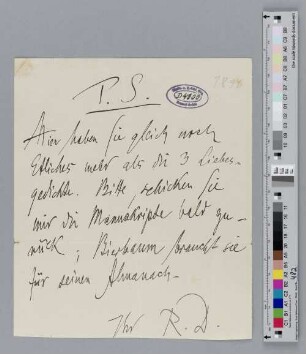 P. S.
Hier haben Sie gleich noch
Etliches mehr als die 3 Liebes-
gedichte. Bitte, schicken Sie
mir die Manuskripte bald zu-
rück; Bierbaum braucht sie
für seinen Almanach.
Ihr R. D.